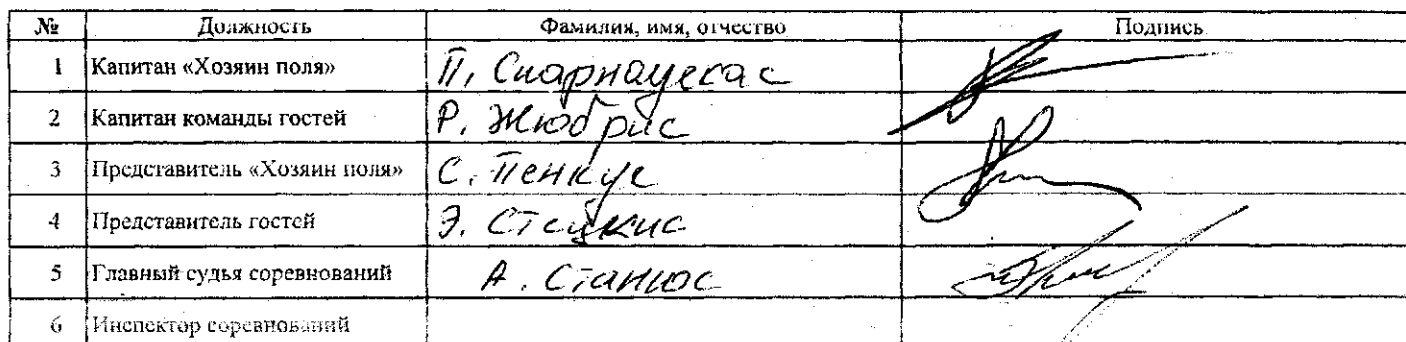 № Должность Фамилия, имя, отчество Подпись
1 Капитан «Хозяин поля» П. Снарнаускас
2 Капитан команды гостей Р. Жюбрис
3 Представитель «Хозяин поля» С. Пенкус
4 Представитель гостей Э.
5 Главный судья соревнований А. Станюс
6 Инспектор соревнований